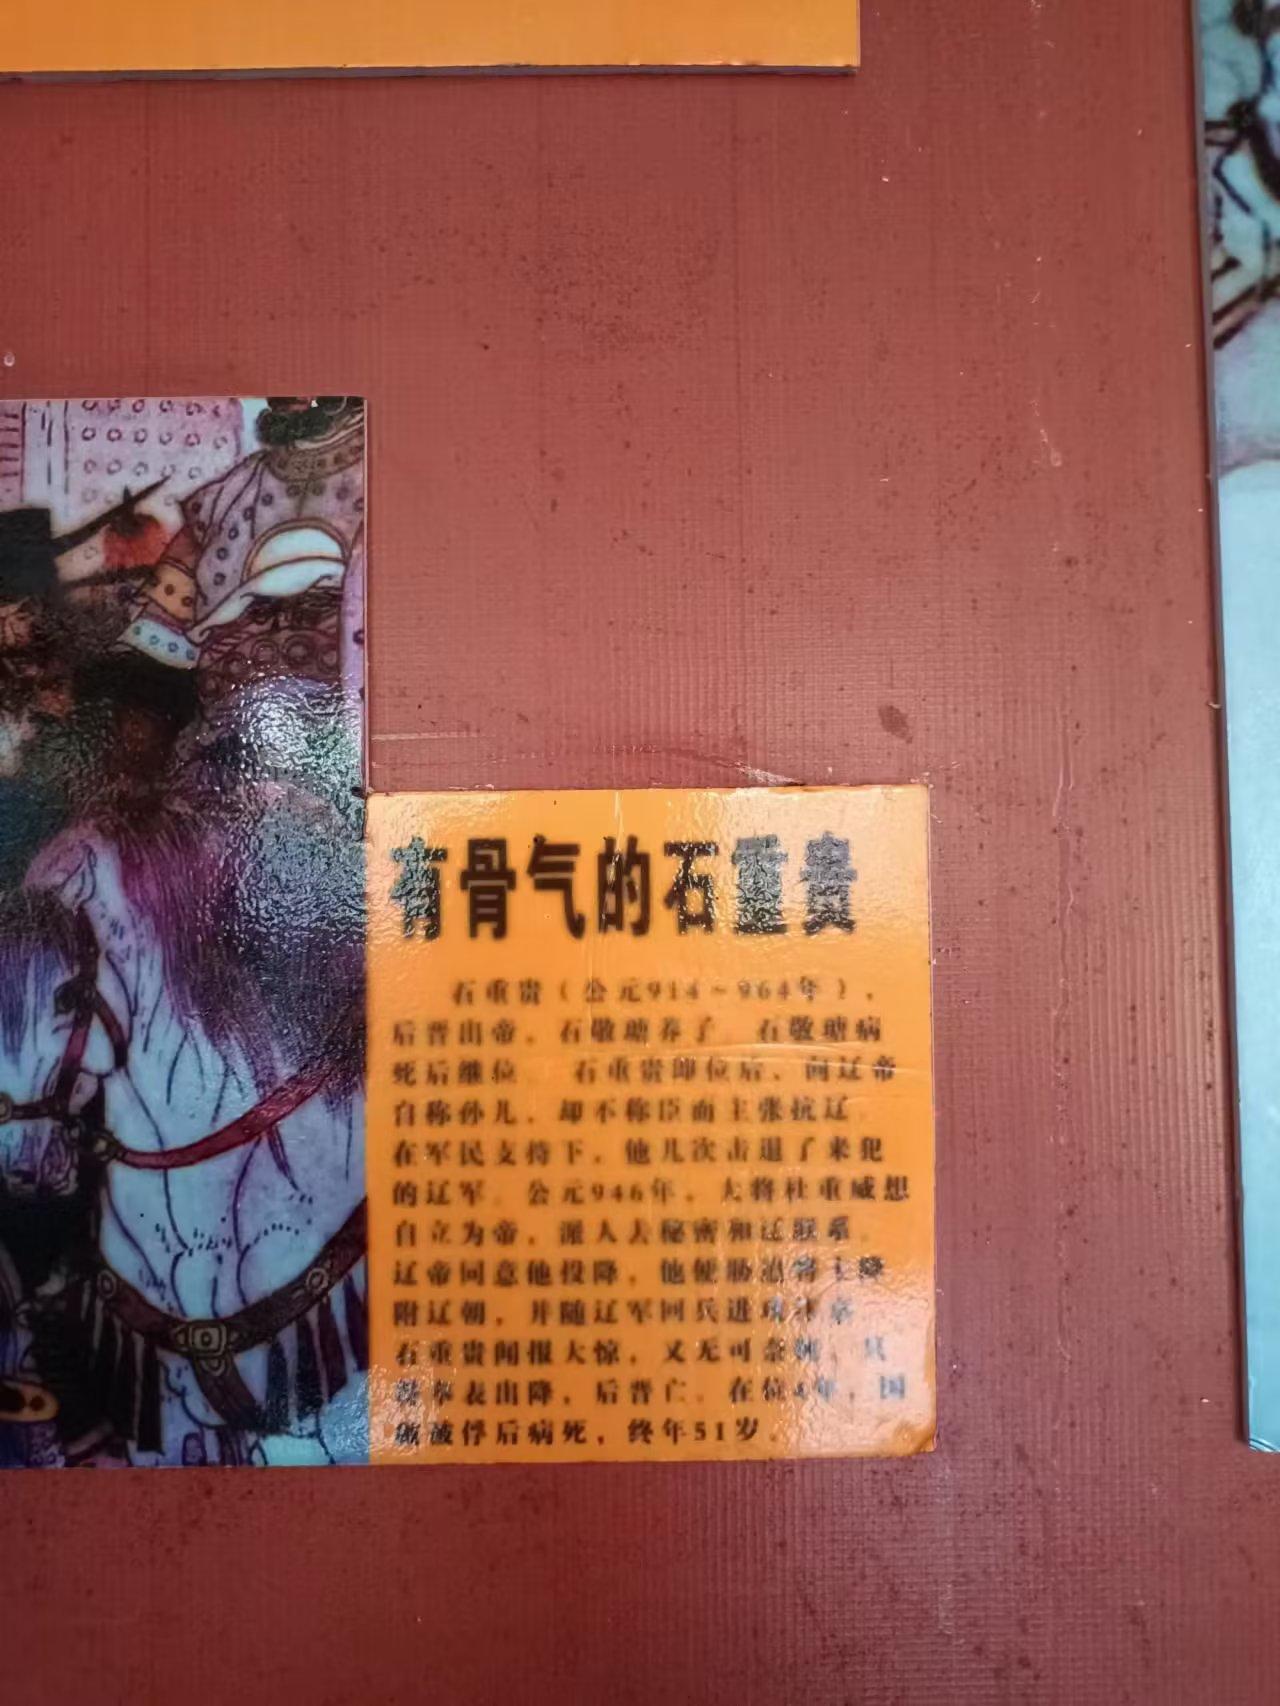 有骨气的石重贵
石重贵（公元914～964年），
后晋出帝，石敬瑭养子。石敬瑭病
死后继位。石重贵即位后，向辽帝
自称孙儿，却不称臣而主张抗辽。
在军民支持下，他几次击退了来犯
的辽军。公元946年，大将杜重威想
自立为帝，派人去秘密和辽联系。
辽帝同意他投降，他便胁迫将士降
附辽朝，并随辽军回兵进攻汴京。
石重贵闻报大惊，又无可奈何，只
得奉表出降，后晋亡。在位4年，国
破被俘后病死，终年51岁。